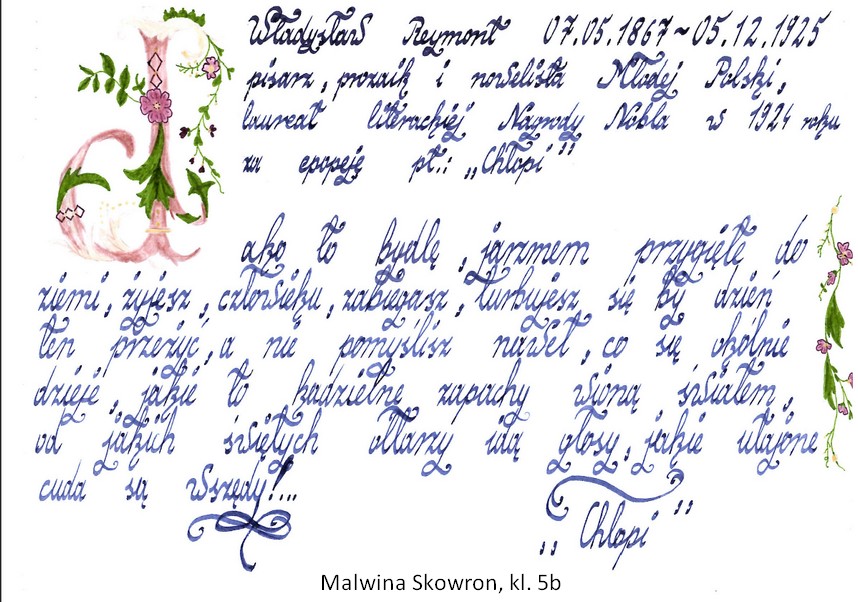 Władysław Reymont 07.05.1867~05.12.1925
pisarz, prozaik i nowelista Młodej Polski,
laureat literackiej Nagrody Nobla w 1924 roku
za epopeję pt.: „Chłopi”
Jako to bydlę, jarzmem przygięte do
ziemi, żyjesz, człowieku, zabiegasz, turbujesz się by dzień
ten przeżyć, a nie pomyślisz nawet, co się okólnie
dzieje, jakie to kadzielne zapachy wioną światem,
od jakich świętych ołtarzy idą głosy, jakie utajone
cuda są wszędy!...
„Chłopi”
Malwina Skowron, kl. 5b